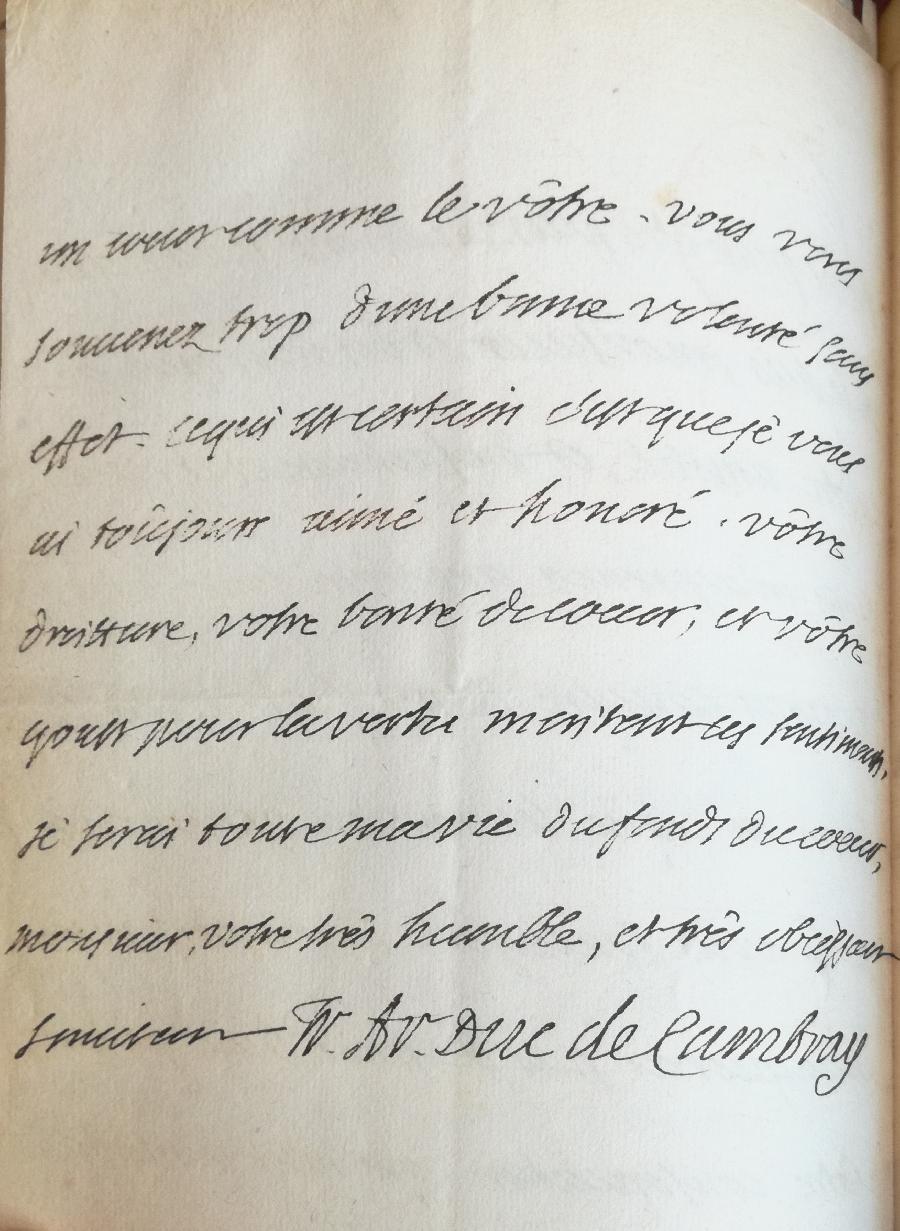 un coeur comme le vôtre. vous vous
souvenez trop d'une bonne volonté sans
effet. ce qui est certain c'est que je vous
ai toûjours aimé et honoré. vôtre
droitture, votre bonté de coeur, et vôtre
goust pour la vertu meritent ces sentimens.
je serai toute ma vie du fonds du coeur,
monsieur, votre très humble, et très obéissant
serviteur Fr. Ar. Duc de Cambray